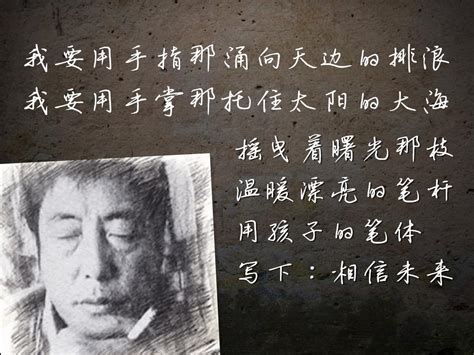 我要用手指那涌向天边的排浪
我要用手掌那托住太阳的大海
摇曳着曙光那枝
温暖漂亮的笔杆
用孩子的笔体
写下：相信未来